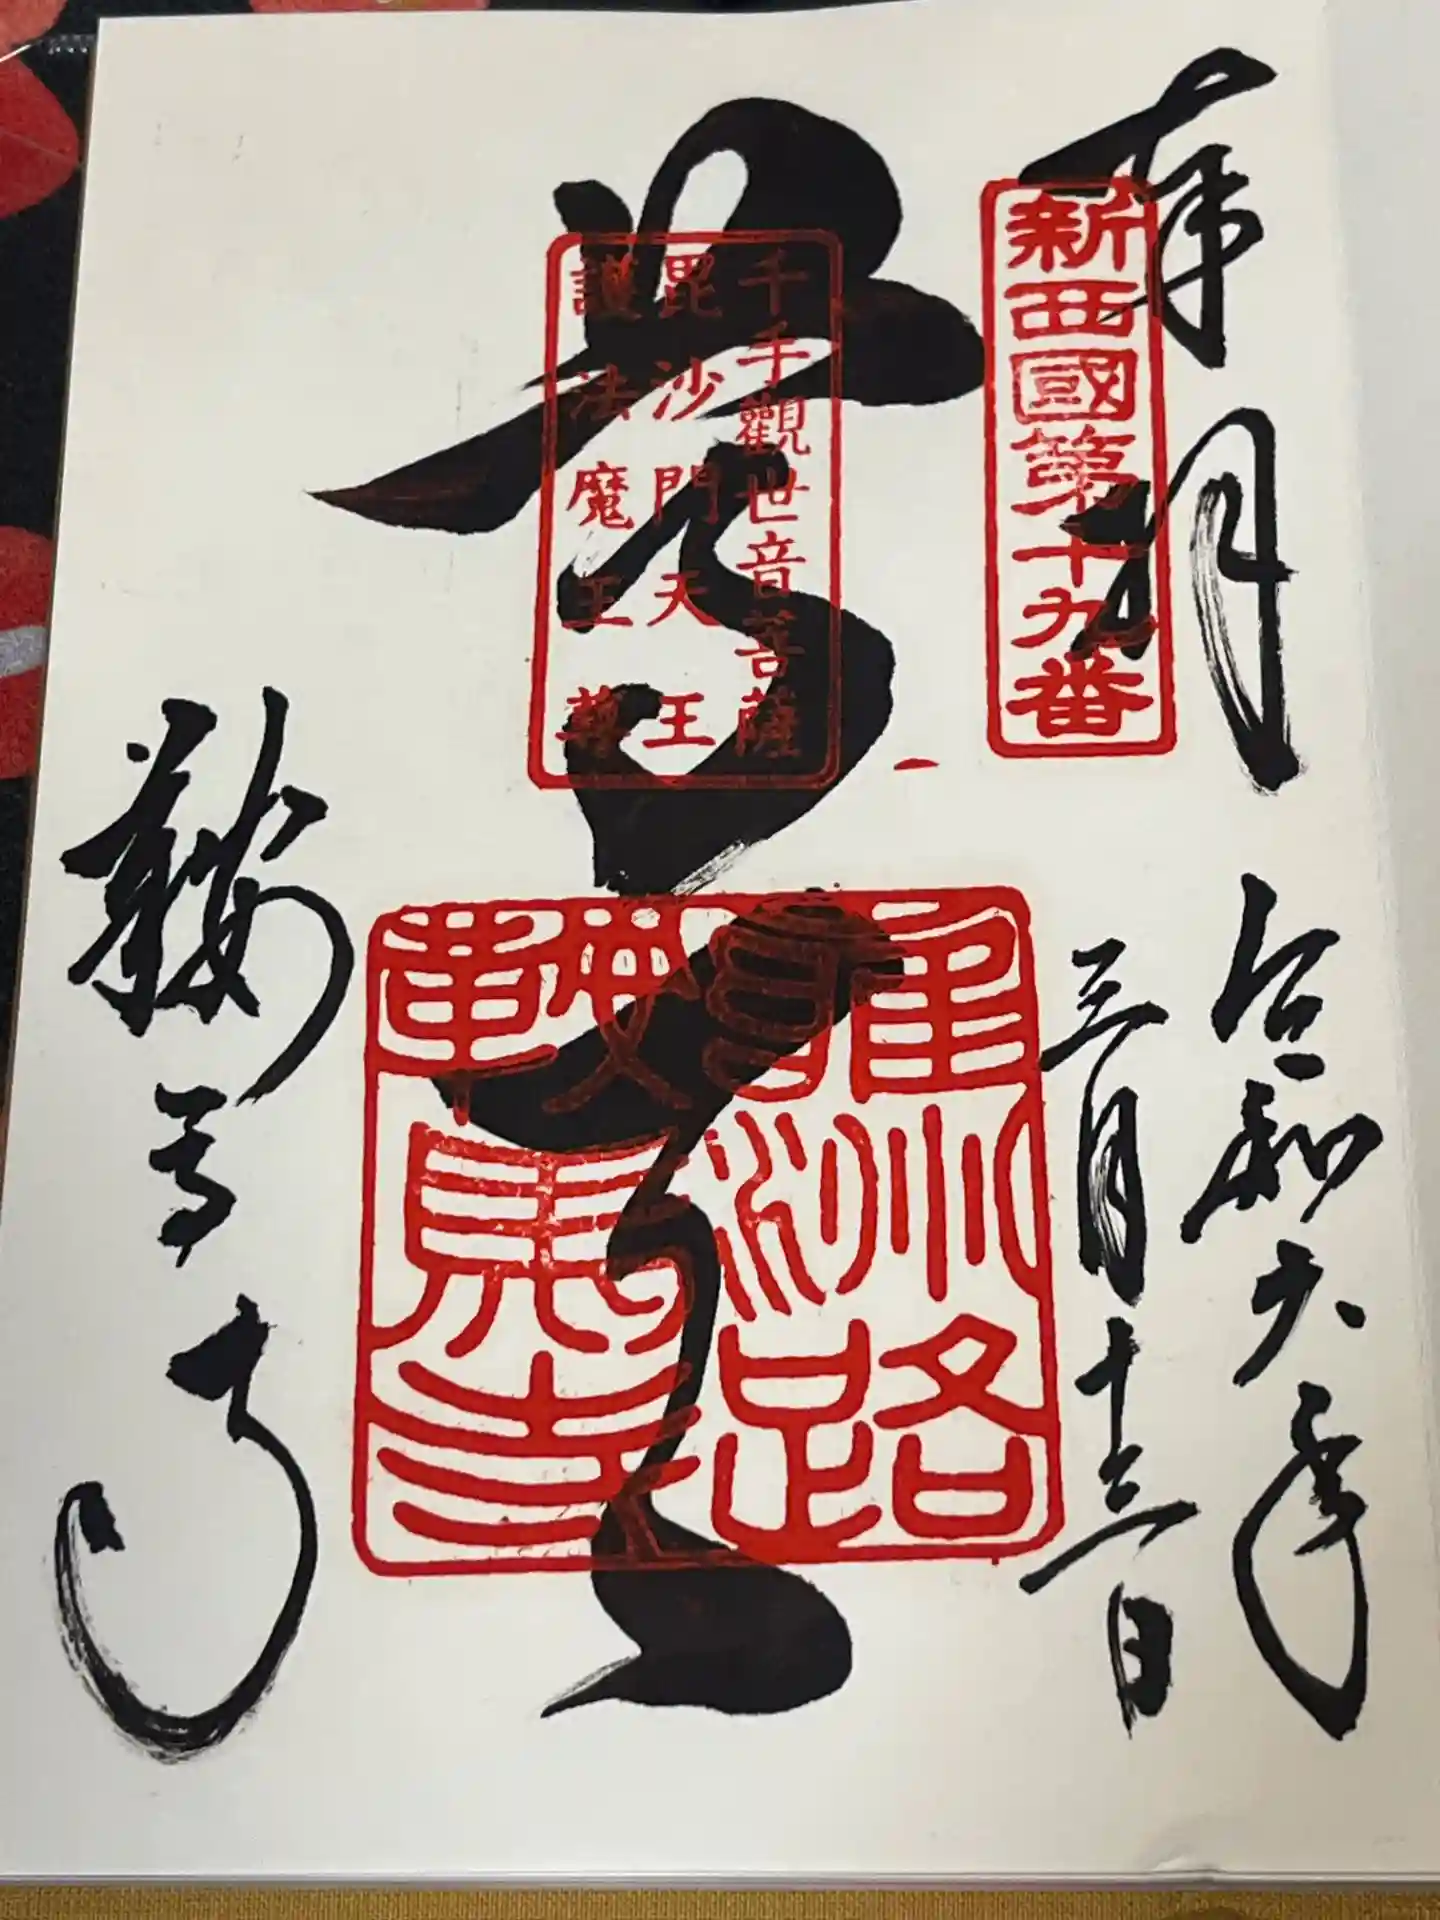 奉拝
新西國第十九番
令和六年
三月十三日
千手觀世音菩薩
毘沙門天王
護法魔王尊
尊天
雍州路
鞍馬寺
鞍馬寺